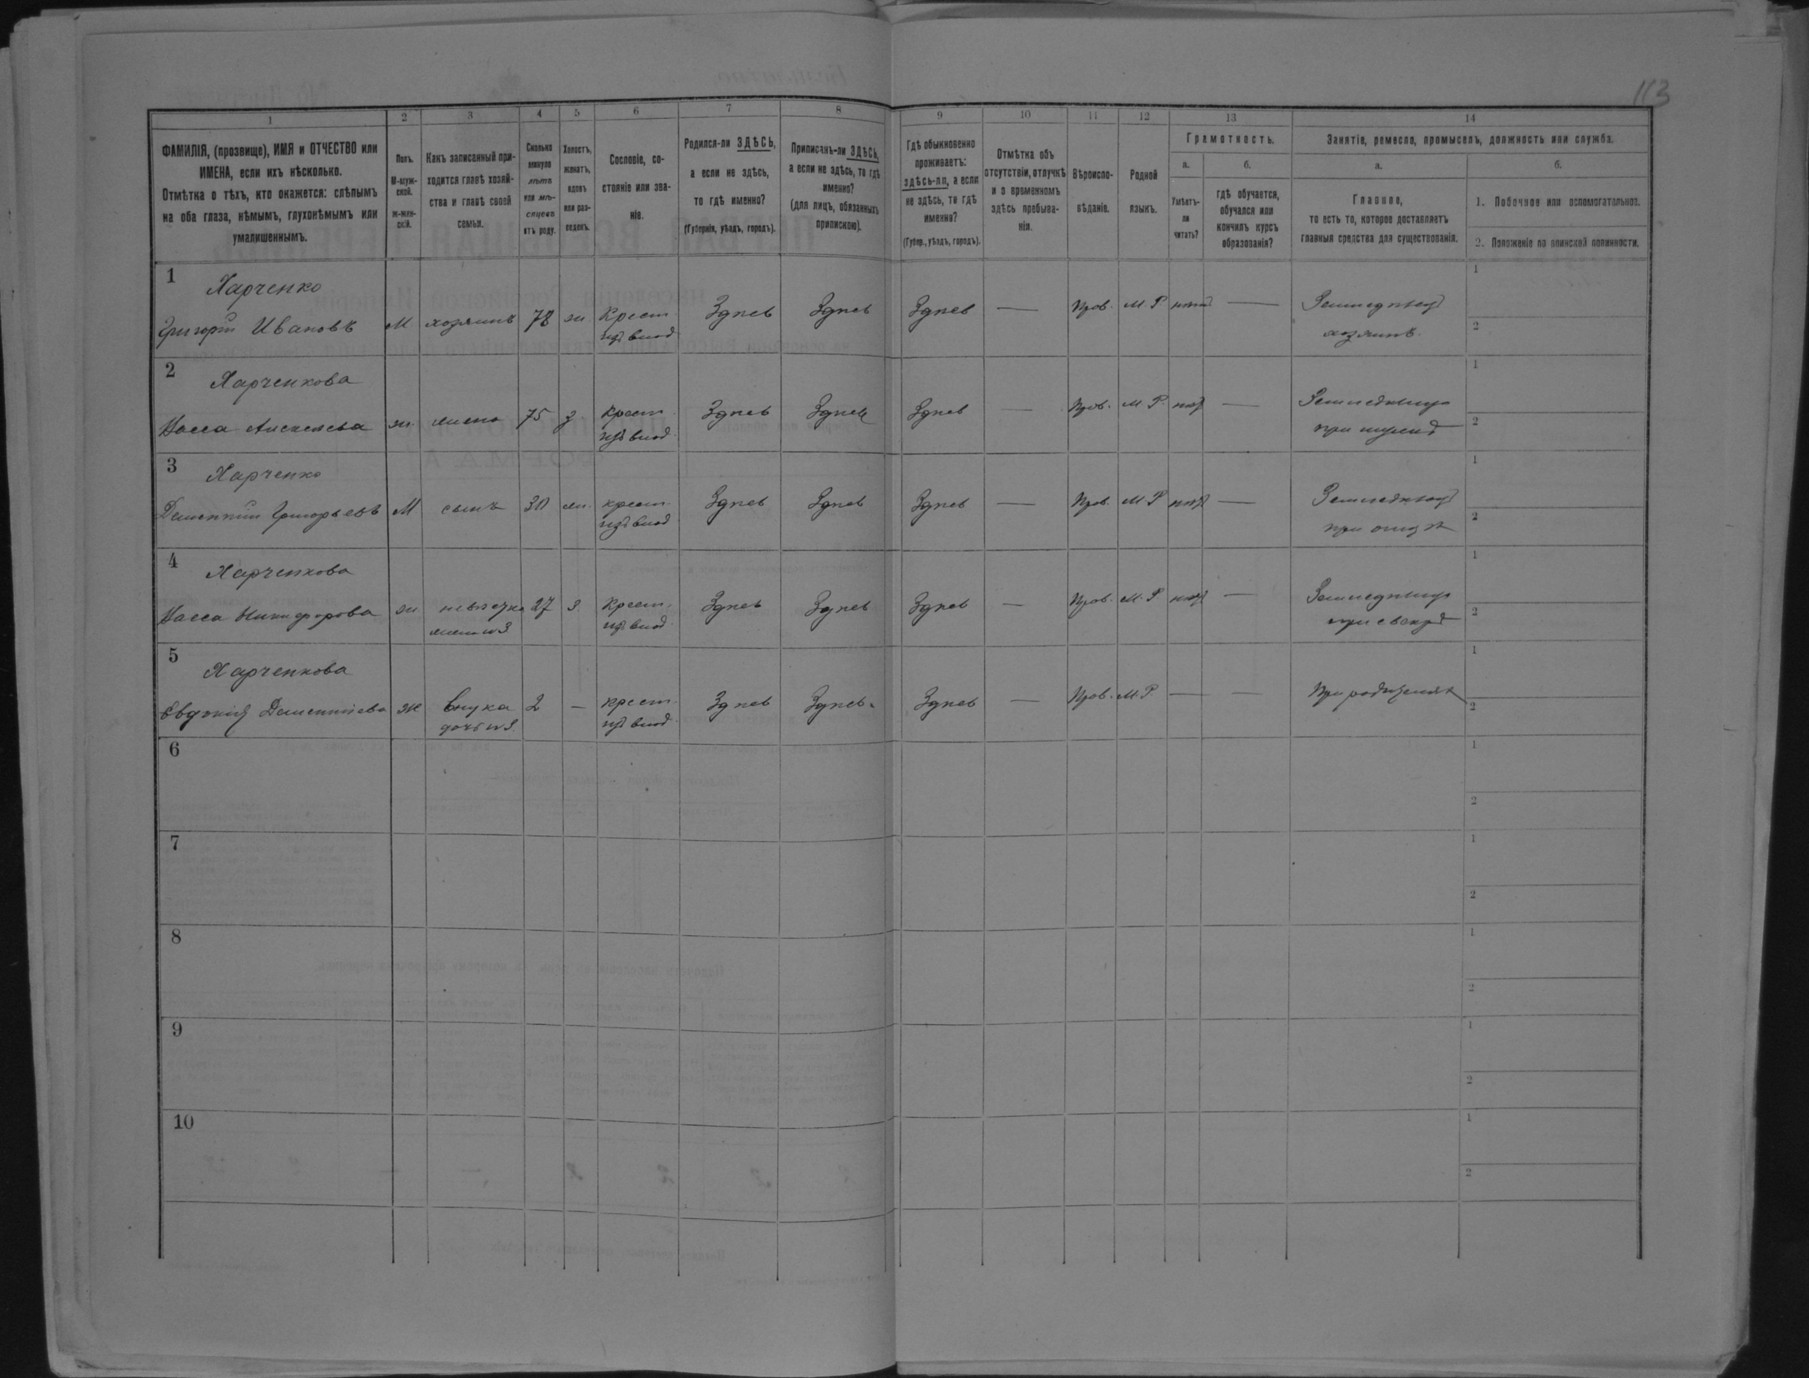 113
1
2
3
4
5
6
7
8
9
10
11
12
13
14
ФАМИЛІЯ, (прозвище), ИМЯ и ОТЧЕСТВО или
ИМЕНА, если ихъ нѣсколько.
Отмѣтка о тѣхъ, кто окажется: слѣпымъ
на оба глаза, нѣмымъ, глухонѣмымъ или
умалишеннымъ.
Полъ.
М-муж-
ской.
ж-жен-
скій.
Какъ записанный при-
ходится главѣ хозяй-
ства и главѣ своей
семьи.
Сколько
минуло
лѣтъ
или мѣ-
сяцевъ
отъ роду.
Холостъ,
женатъ,
вдовъ
или раз-
веденъ.
Сословіе, со-
стояніе или зва-
ніе.
Родился-ли ЗДѢСЬ,
а если не здѣсь,
то гдѣ именно?
(Губернія, уѣздъ, городъ).
Приписанъ-ли ЗДѢСЬ,
а если не здѣсь, то гдѣ
именно?
(для лицъ, обязанныхъ
припискою).
Гдѣ обыкновенно
проживаетъ:
здѣсь-ли, а если
не здѣсь, то гдѣ
именно?
(Губер., уѣздъ, городъ).
Отмѣтка объ
отсутствіи, отлучкѣ
и о временномъ
здѣсь пребыва-
ніи.
Вѣроиспо-
вѣданіе.
Родной
языкъ.
Грамотность.
а.
Умѣетъ-
ли
читать?
б.
гдѣ обучается,
обучался или
кончилъ курсъ
образованія?
Занятіе, ремесло, промыселъ, должность или служба.
а.
Главное,
то есть то, которое доставляетъ
главныя средства для существованія.
б.
1. Побочное или вспомогательное.
2. Положеніе по воинской повинности.
1
Харченко
Григорій Ивановъ М хозяинъ 78 ж Крест. Здѣсь Здѣсь Здѣсь — Прав. М.Р. нѣтъ —
хозяинъ
1
2
2
Харченкова
жена 75 з крест. Здѣсь Здѣсь Здѣсь — Прав. М.Р. нѣт —
1
2
3
Харченко
Дементій Григорьевъ М сынъ 30 ж. крест. Здѣсь Здѣсь Здѣсь — Прав. М.Р. нѣт —
при отцѣ
1
2
4
Харченкова
Никифорова невѣстка 27 з крест. Здѣсь Здѣсь Здѣсь — Прав. М.Р. нѣт —
1
2
5
Харченкова
Евдокія Дементіева ж Внука 2 — крест. Здѣсь Здѣсь Здѣсь — Прав. М.Р. — — При родителях
1
2
6
1
2
7
1
2
8
1
2
9
1
2
10
1
2